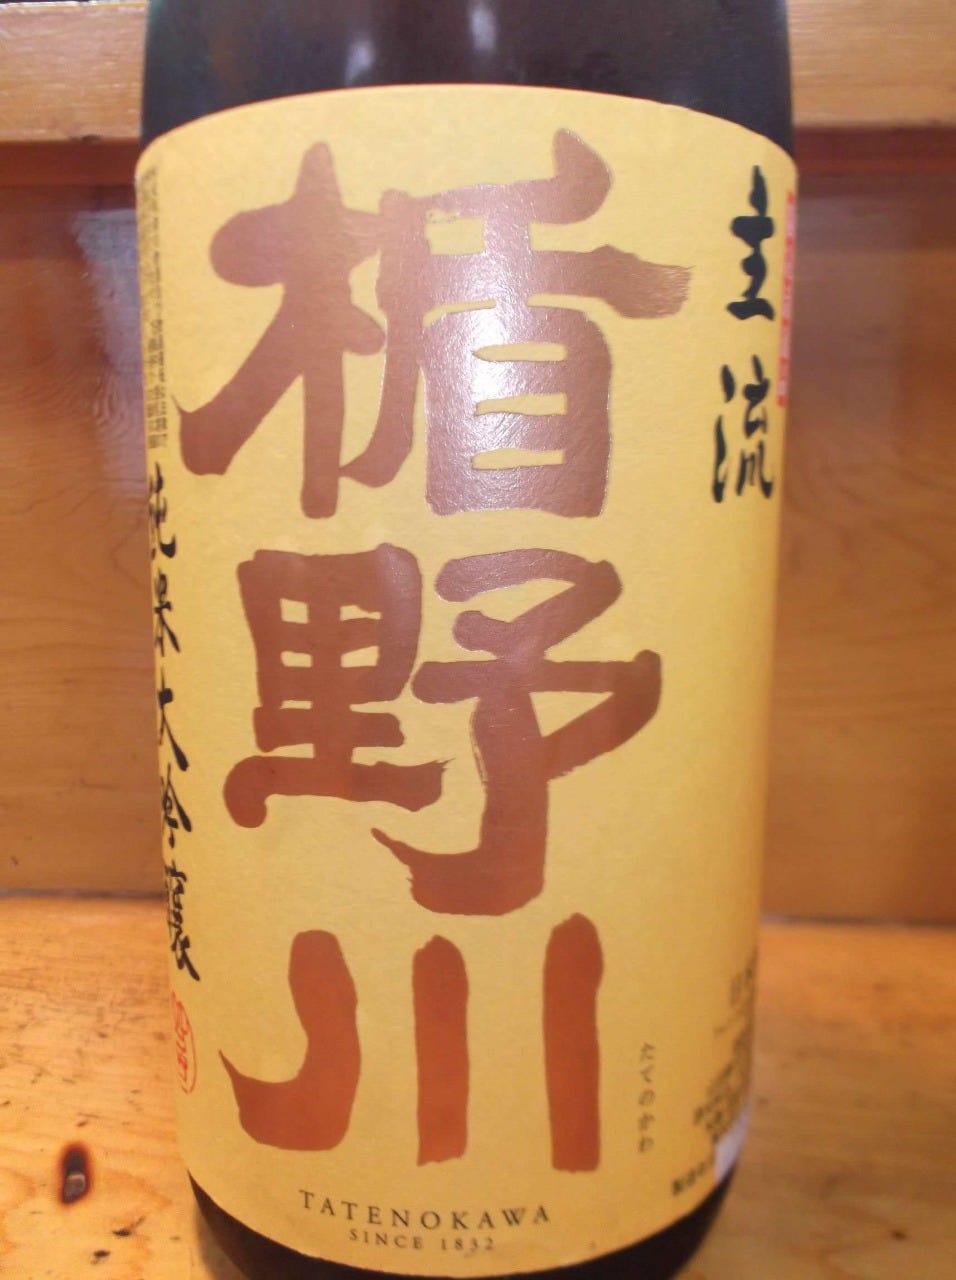 主流
楯野川
純米大吟醸
たてのかわ
TATENOKAWA
SINCE 1832